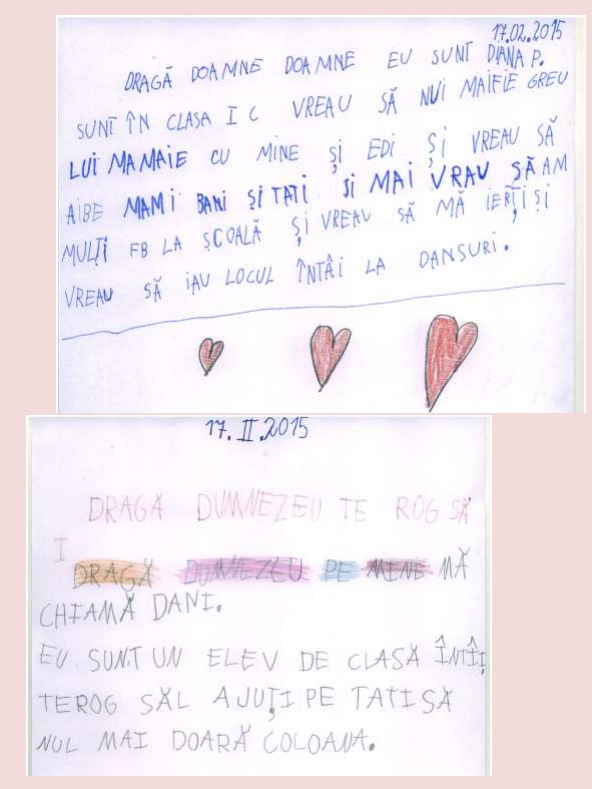 17.02.2015
DRAGĂ DOAMNE DOAMNE EU SUNT DIANA P.
SUNT ÎN CLASA I C VREAU SĂ NUI MAIFIE GREU
LUI MAMAIE CU MINE ȘI EDI ȘI VREAU SĂ
AIBE MAMI BANI ȘI TATI ȘI MAI VRAU SĂ AM
MULȚI FB LA ȘCOALĂ ȘI VREAU SĂ MĂ IERȚI SI
VREAU SĂ IAU LOCUL ÎNTÂI LA DANSURI.
17.II.2015
DRAGĂ DUMNEZEU TE ROG SĂ
I
DRAGĂ DUMNEZEU PE MINE MĂ
CHIAMĂ DANI.
EU SUNT UN ELEV DE CLASĂ ÎNTÎI
TEROG SĂL AJUȚI PE TATI SĂ
NUL MAI DOARĂ COLOANA.